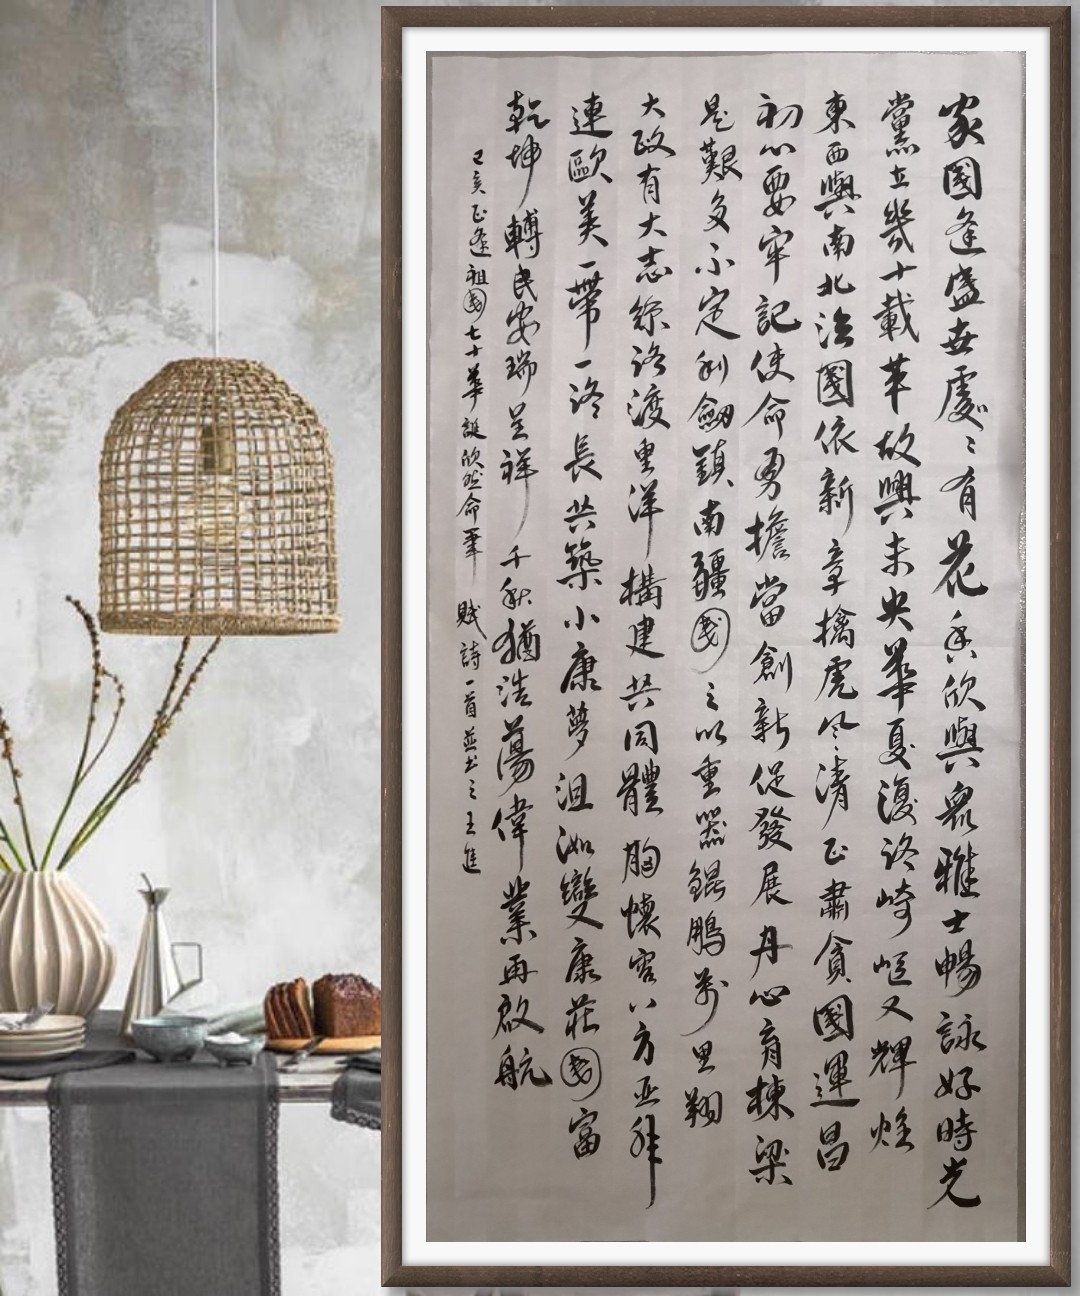 家國逢盛世處〻有花香欣與衆雅士暢詠好時光
黨立幾十載革故興未央華夏復路崎岖又輝煌
東西與南北治國依新章擒虎风清正肅貪國運昌
初心要牢記使命勇擔當創新促發展丹心育棟梁
是艱多不定利劒鎮南疆國之以重器鯤鵬萬里翔
大政有大志綜路渡重洋構建共同體胸懷容八方亚非
連歐美一帶一路長共築小康夢沮洳變康莊國富
乾坤轉民安瑞呈祥千秋猶浩蕩偉業再啟航
己亥正逢祖國七十華誕欣然命筆賦詩一首並书之王進